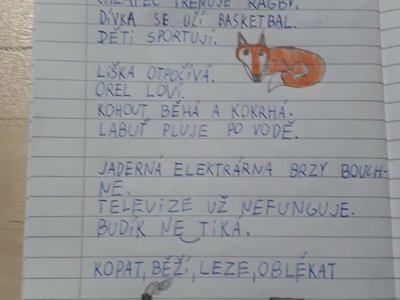 CHLAPEC TRÉNUJE RAGBY.
DÍVKA SE UČÍ BASKETBAL.
DĚTI SPORTUJÍ.
LIŠKA OTPOČÍVÁ.
OREL LOVÍ.
KOHOUT BĚHÁ A KOKRHÁ.
LABUŤ PLUJE PO VODĚ.
JADERNÁ ELEKTRÁRNA BRZY BOUCH-
NE.
TELEVIZE UŽ NEFUNGUJE.
BUDÍK NE TIKÁ.
KOPAT, BĚŽÍ, LEZE, OBLÉKAT